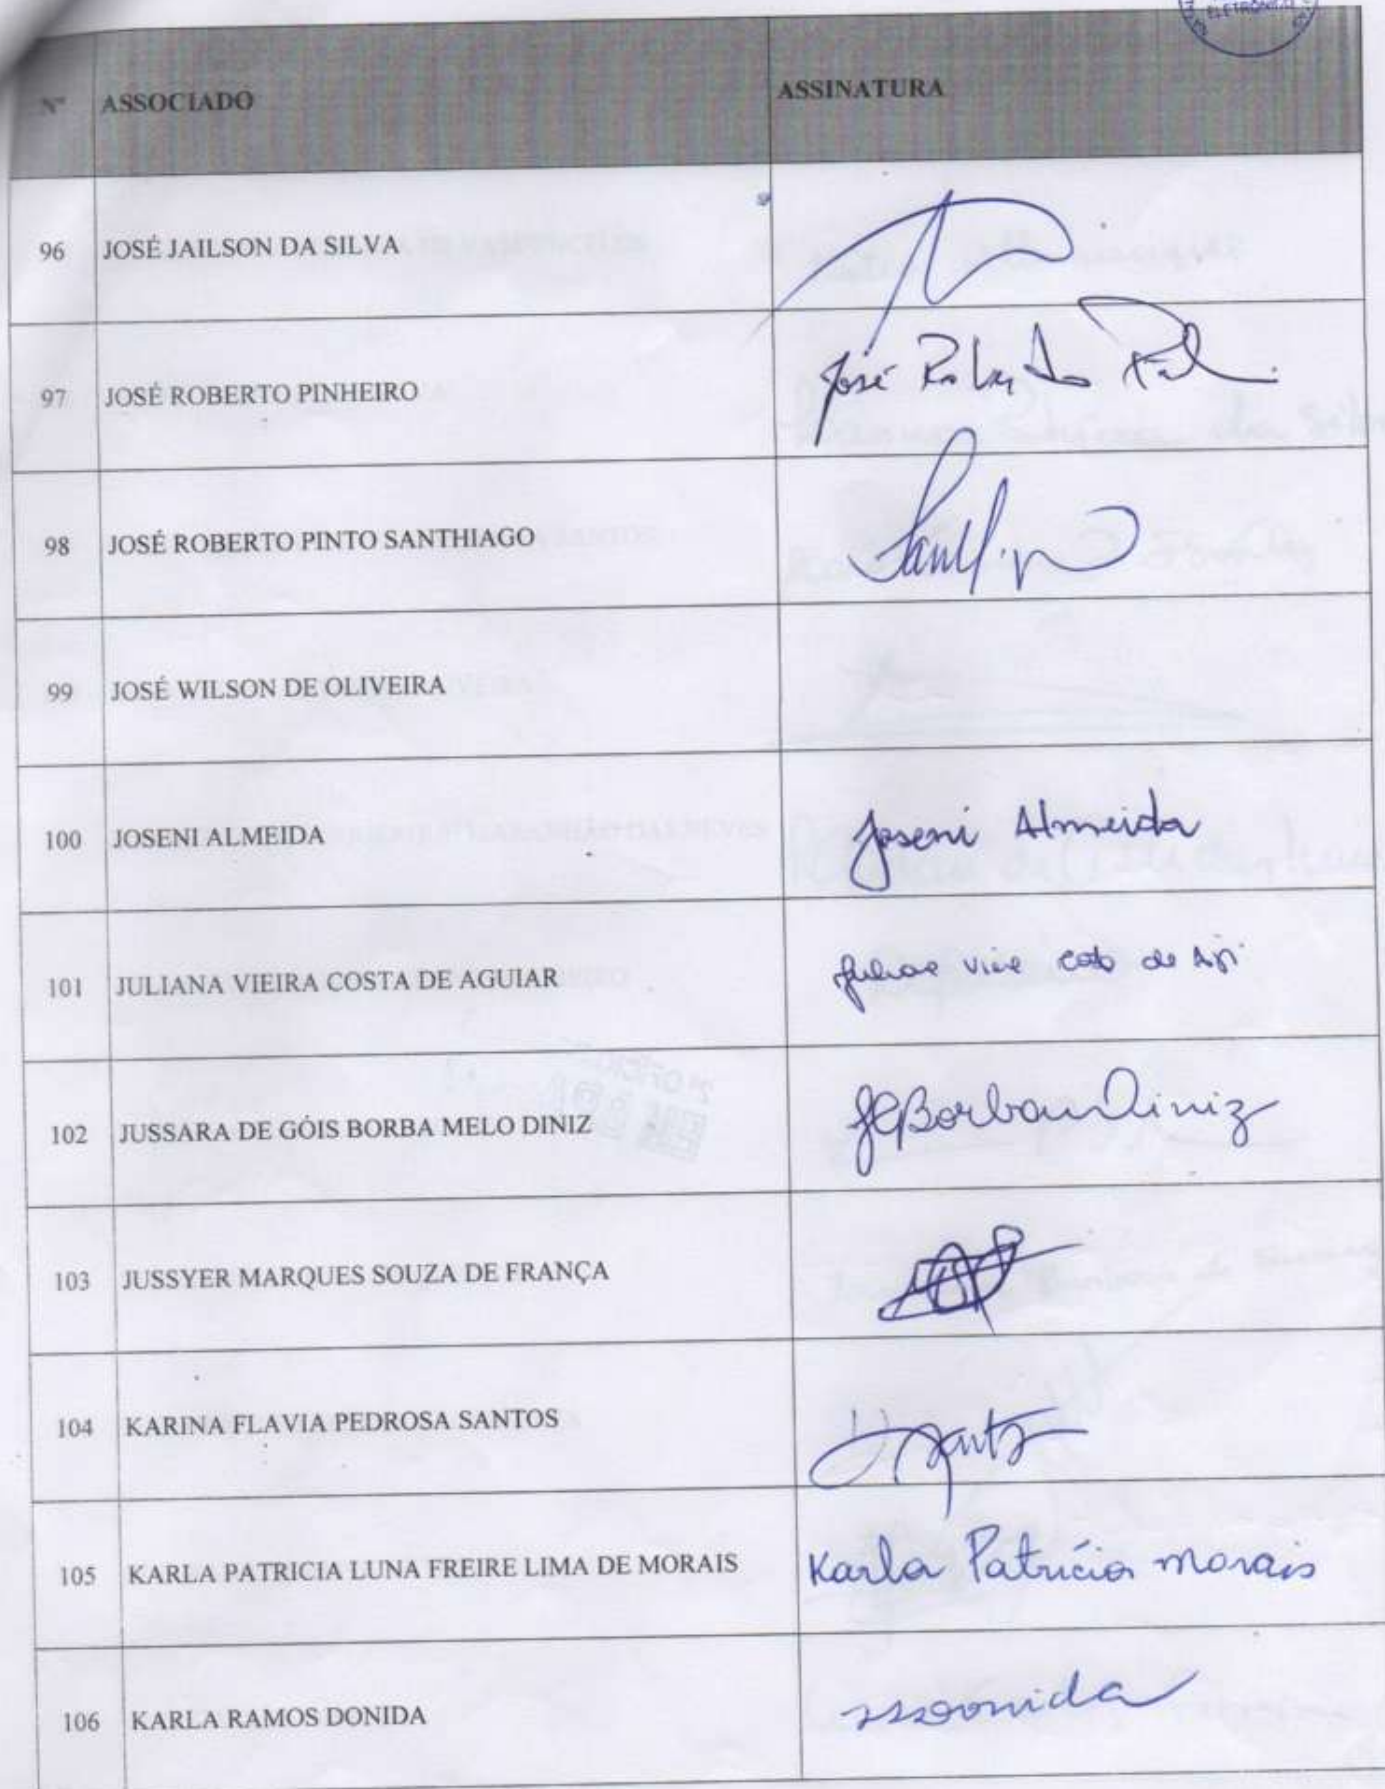 ELETRÔNICO
Nº ASSOCIADO ASSINATURA
96 JOSÉ JAILSON DA SILVA
97 JOSÉ ROBERTO PINHEIRO José Roberto
98 JOSÉ ROBERTO PINTO SANTHIAGO
99 JOSÉ WILSON DE OLIVEIRA
100 JOSENI ALMEIDA Joseni Almeida
101 JULIANA VIEIRA COSTA DE AGUIAR
102 JUSSARA DE GÓIS BORBA MELO DINIZ JGBorba Diniz
103 JUSSYER MARQUES SOUZA DE FRANÇA
104 KARINA FLAVIA PEDROSA SANTOS
105 KARLA PATRICIA LUNA FREIRE LIMA DE MORAIS Karla Patrícia Morais
106 KARLA RAMOS DONIDA